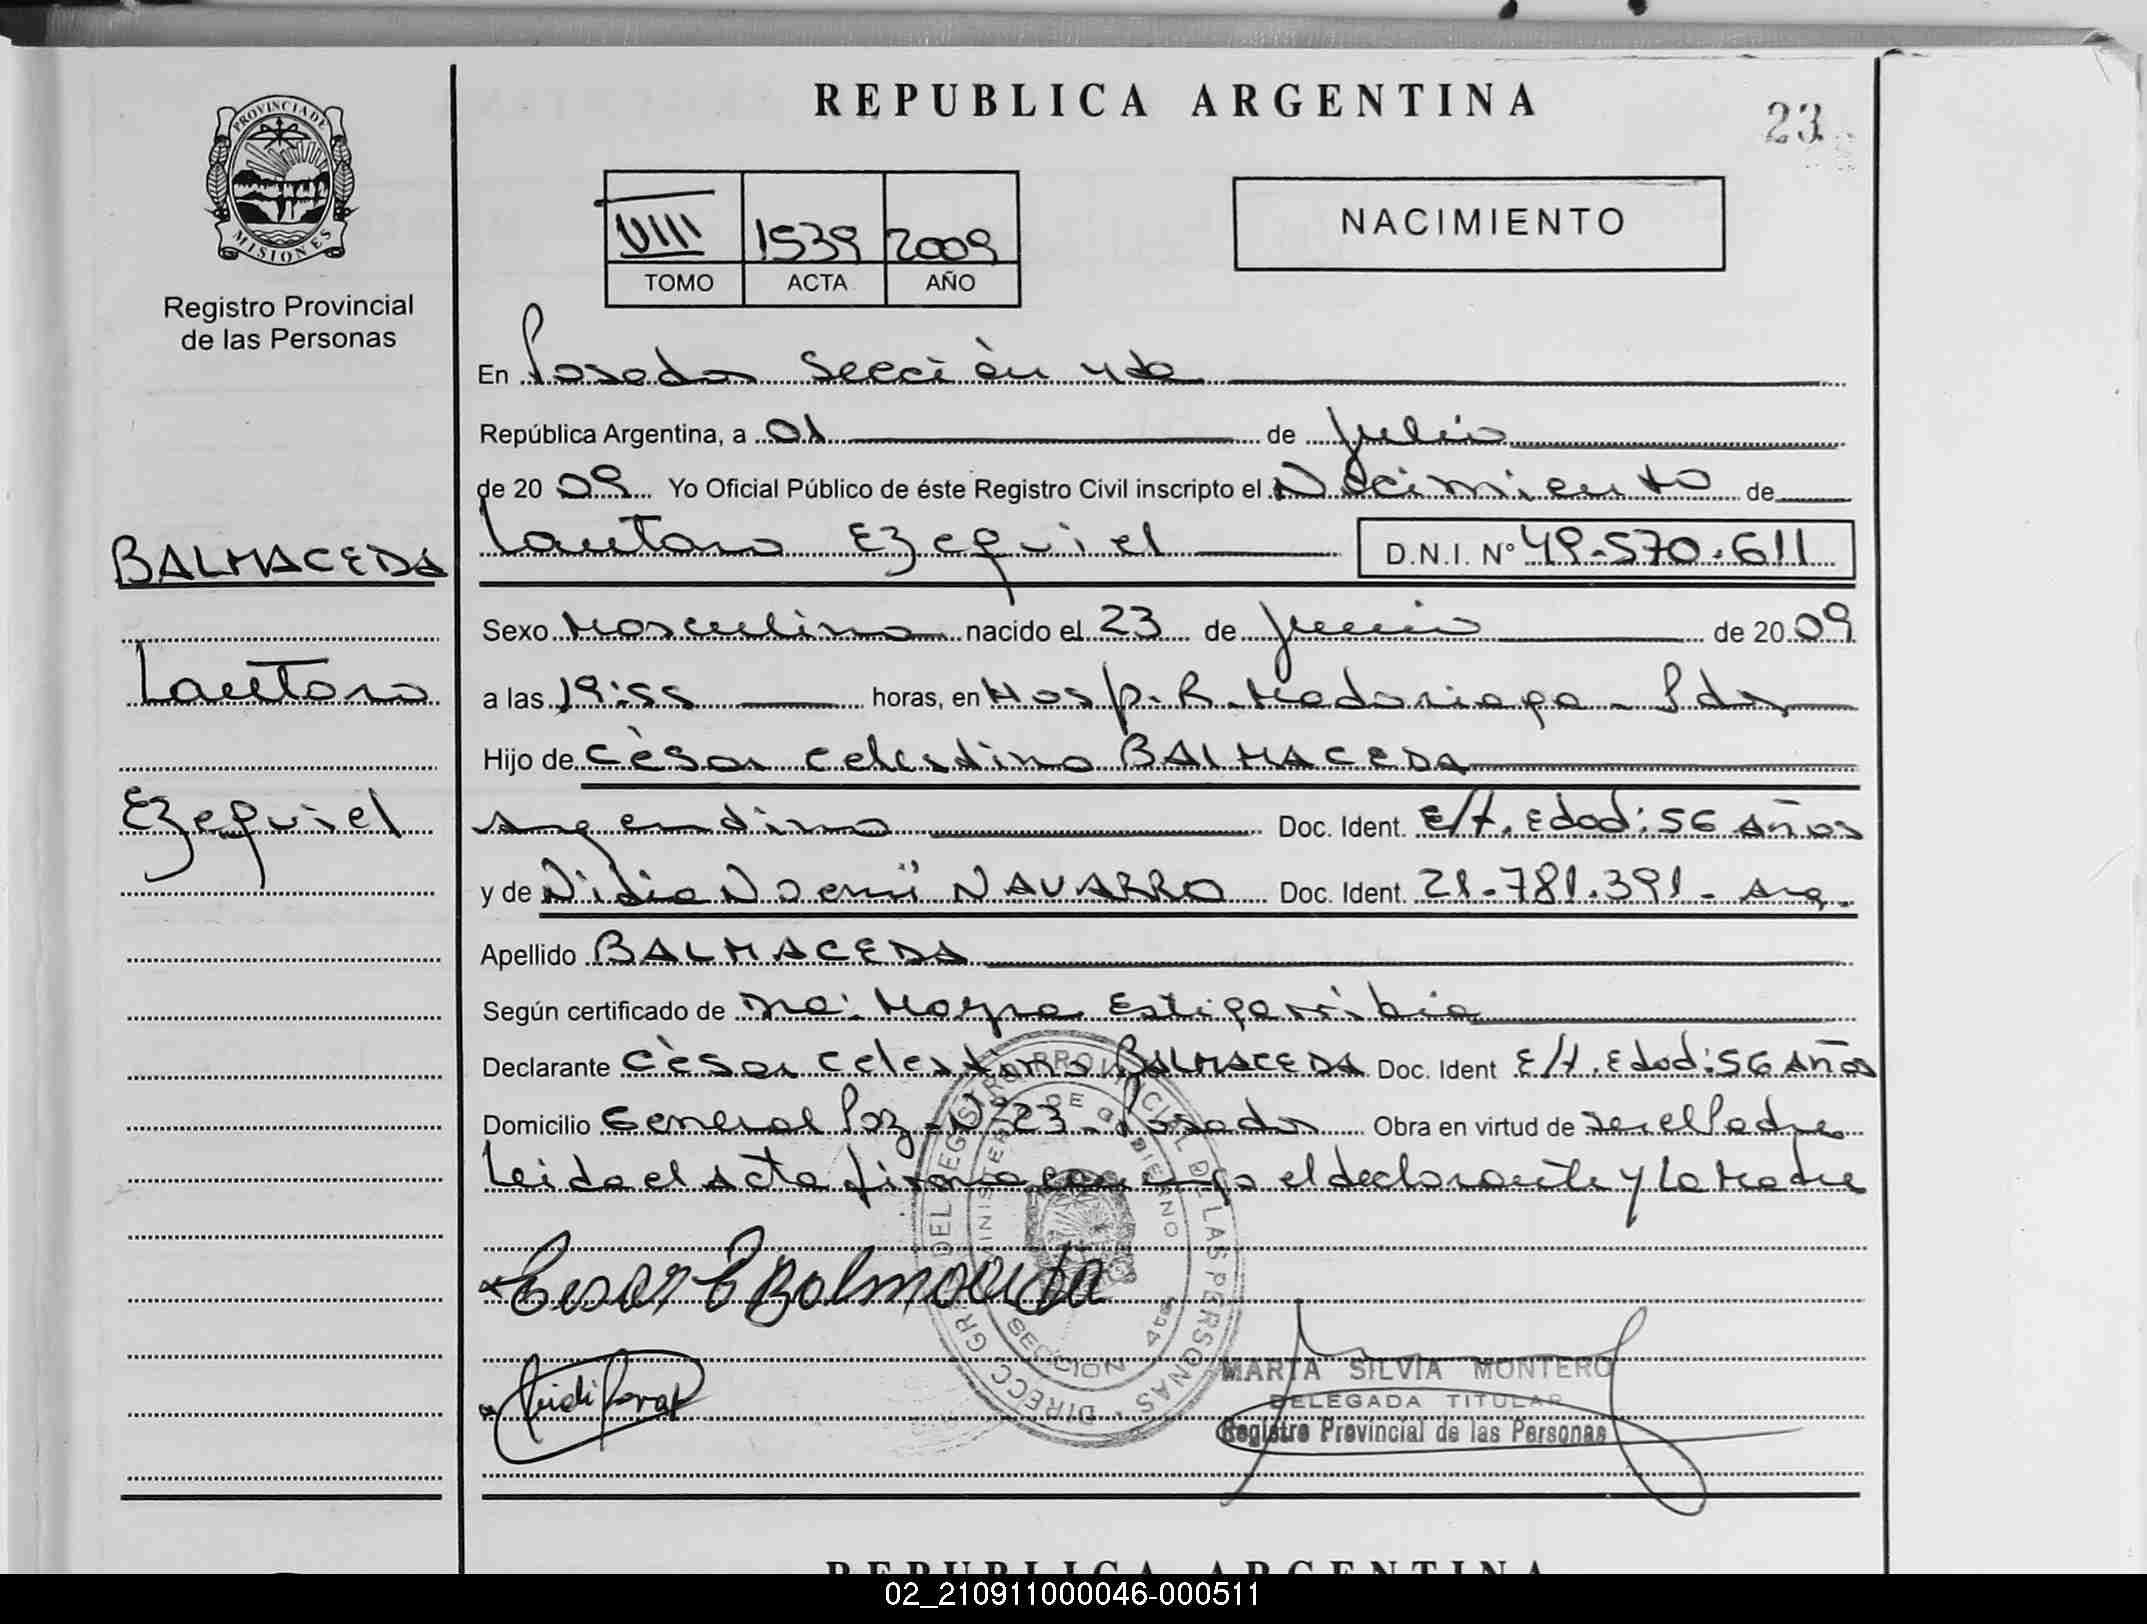 REPUBLICA ARGENTINA
23
PROVINCIA DE
MISIONES
Registro Provincial
de las Personas
VIII 1539 2009
TOMO ACTA AÑO
NACIMIENTO
En Posadas Sección 4ta
República Argentina, a 01 de Julio
de 20 09 Yo Oficial Público de éste Registro Civil inscripto el Nacimiento de
Lautaro Ezequiel D.N.I. Nº 49.570.611
BALMACEDA
Lautaro
Ezequiel
Sexo Masculino nacido el 23 de Junio de 20 09
a las 19:55 horas, en Hosp. R. Madariaga - Pdas
Hijo de Cèsar Celestino BALMACEDA
Argentino Doc. Ident. E/t. Edad: 56 Años
y de Nidia Noemí NAVARRO Doc. Ident. 21.781.391 - Arg.
Apellido BALMACEDA
Según certificado de Mayra Estigarribia
Declarante Cèsar Celestino BALMACEDA Doc. Ident E/t. Edad: 56 Años
Domicilio General Paz Nº 23 - Posadas Obra en virtud de ser el Padre
Leida el Acta firma conmigo el declarante y la Madre
DIRECC. GRAL. DEL REGISTRO PROVINCIAL DE LAS PERSONAS
MINISTERIO DE GOBIERNO
SECCION 4ta
Cesar C Balmaceda
MARTA SILVIA MONTERO
DELEGADA TITULAR
Registro Provincial de las Personas
REPUBLICA ARGENTINA
02_210911000046-000511